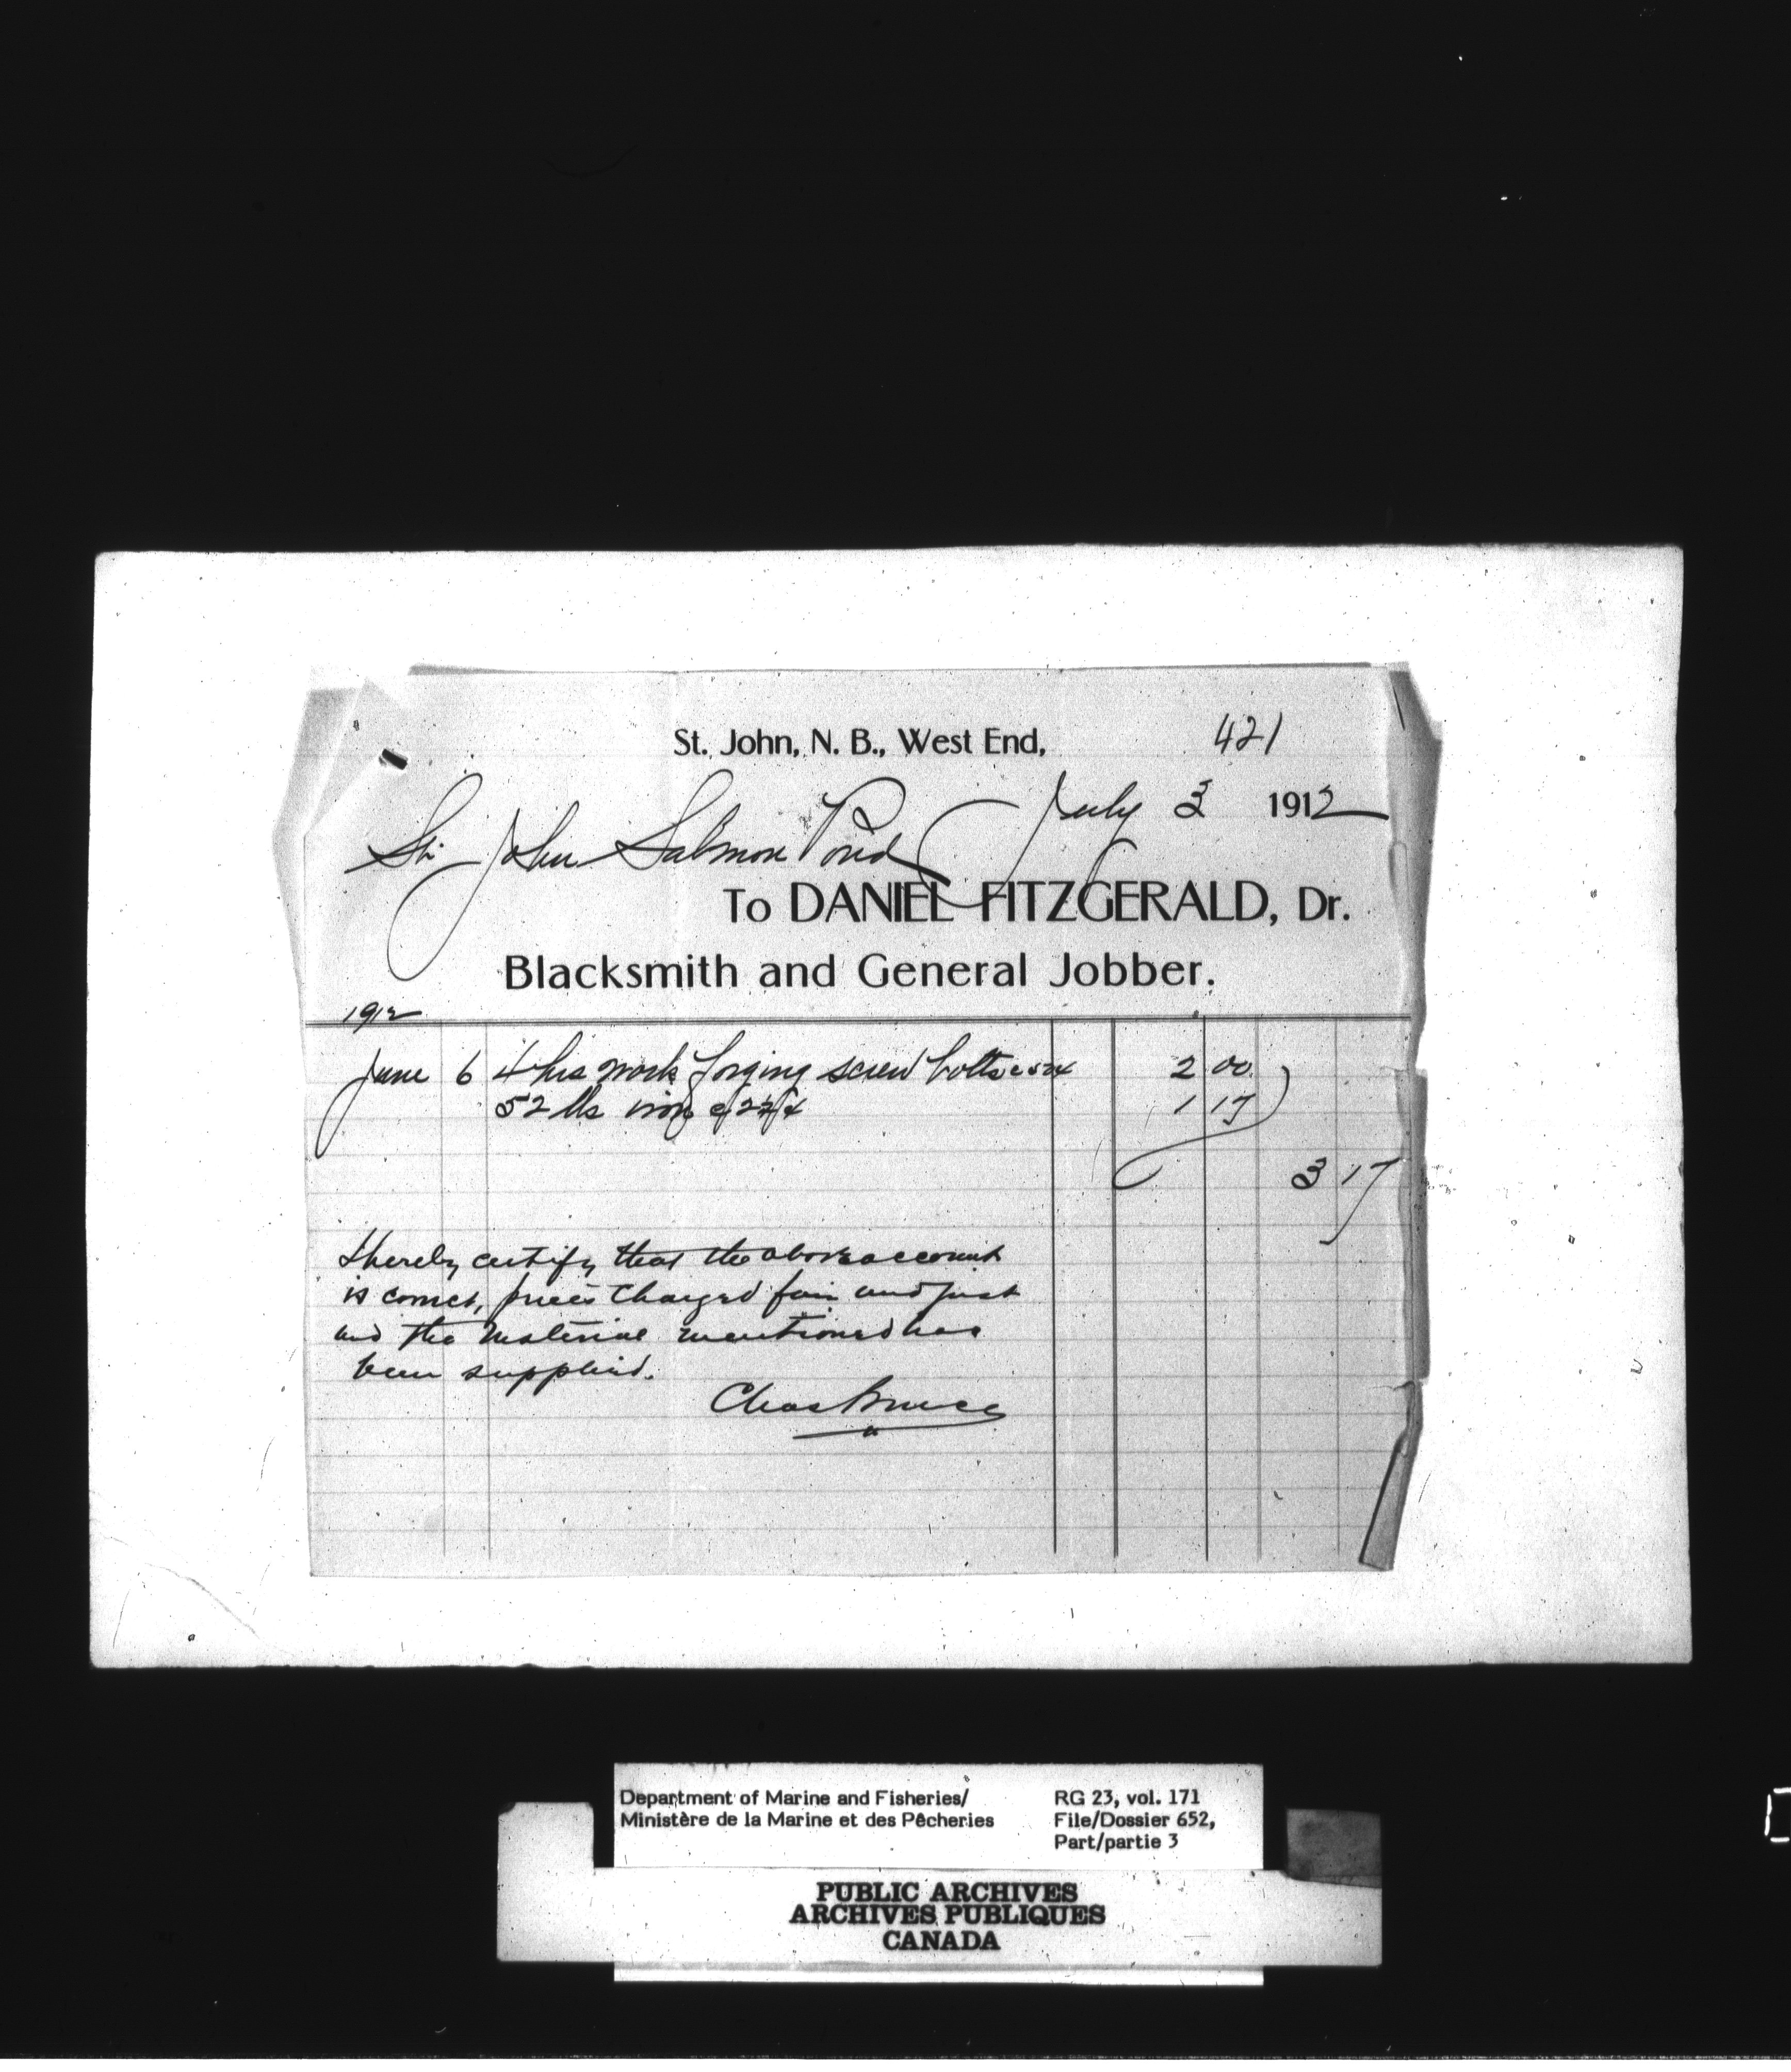 St. John, N. B., West End,
421
July 3 1912
St. John Salmon Pond
To DANIEL FITZGERALD, Dr.
Blacksmith and General Jobber.
1912
June 6 4 hrs work forging screw bolts @ 50¢ 2 00
52 lbs iron @ 2¼¢ 1 17
3 17
I hereby certify that the above account
is correct, prices charged fair and just
and the material mentioned has
been supplied.
Chas Bruce
Department of Marine and Fisheries/
Ministère de la Marine et des Pêcheries
RG 23, vol. 171
File/Dossier 652,
Part/partie 3
PUBLIC ARCHIVES
ARCHIVES PUBLIQUES
CANADA